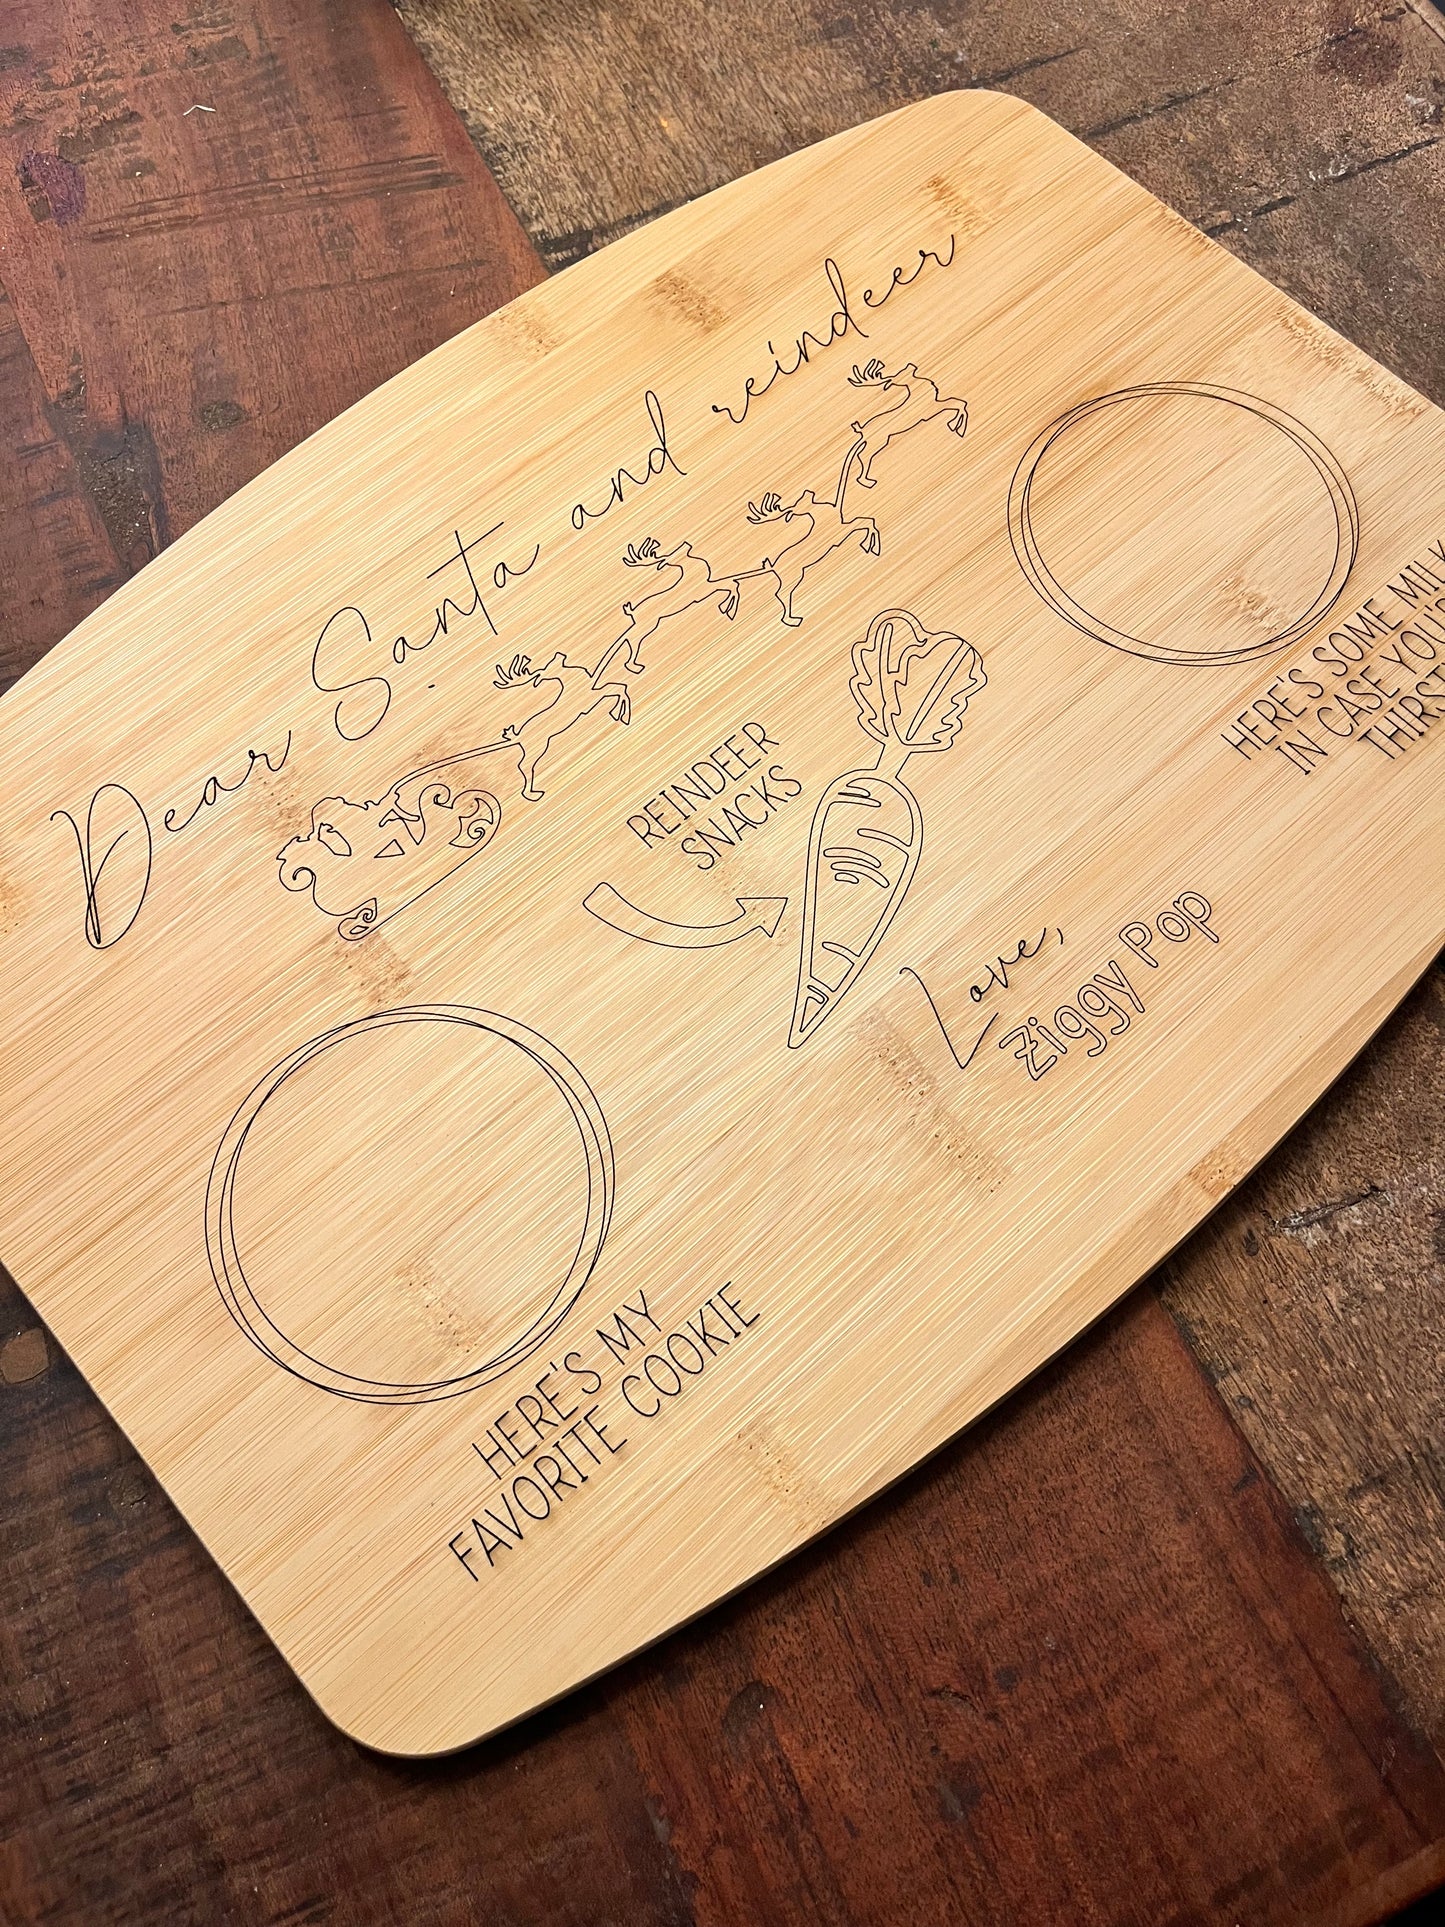 Dear Santa and reindeer
REINDEER
SNACKS
HERE'S SOME MILK
IN CASE YOU'R
THIRST
Love,
Ziggy Pop
HERE'S MY
FAVORITE COOKIE